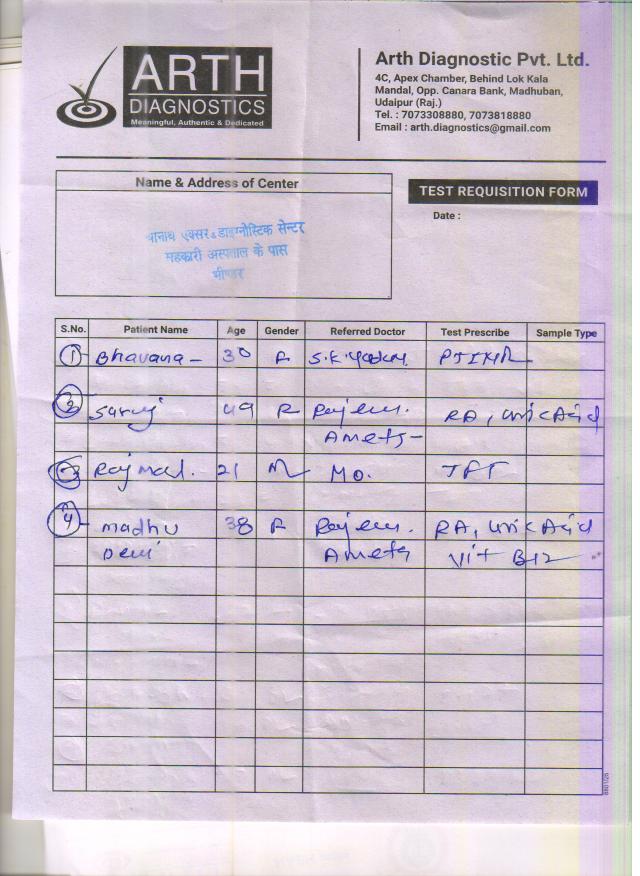 ARTH
DIAGNOSTICS
Meaningful, Authentic & Dedicated
Arth Diagnostic Pvt. Ltd.
4C, Apex Chamber, Behind Lok Kala
Mandal, Opp. Canara Bank, Madhuban,
Udaipur (Raj.)
Tel. : 7073308880, 7073818880
Email : arth.diagnostics@gmail.com
Name & Address of Center
TEST REQUISITION FORM
Date :
एक्सरे & डाइग्नोस्टिक सेन्टर
अस्पताल के पास
भीण्डर
S.No. Patient Name Age Gender Referred Doctor Test Prescribe Sample Type
1 Bhavana 30 F S.K.
49 F RA, Uric Acid
21 M MO. TFT
4 Madhu 38 F RA, Uric Acid
Devi Vit B12